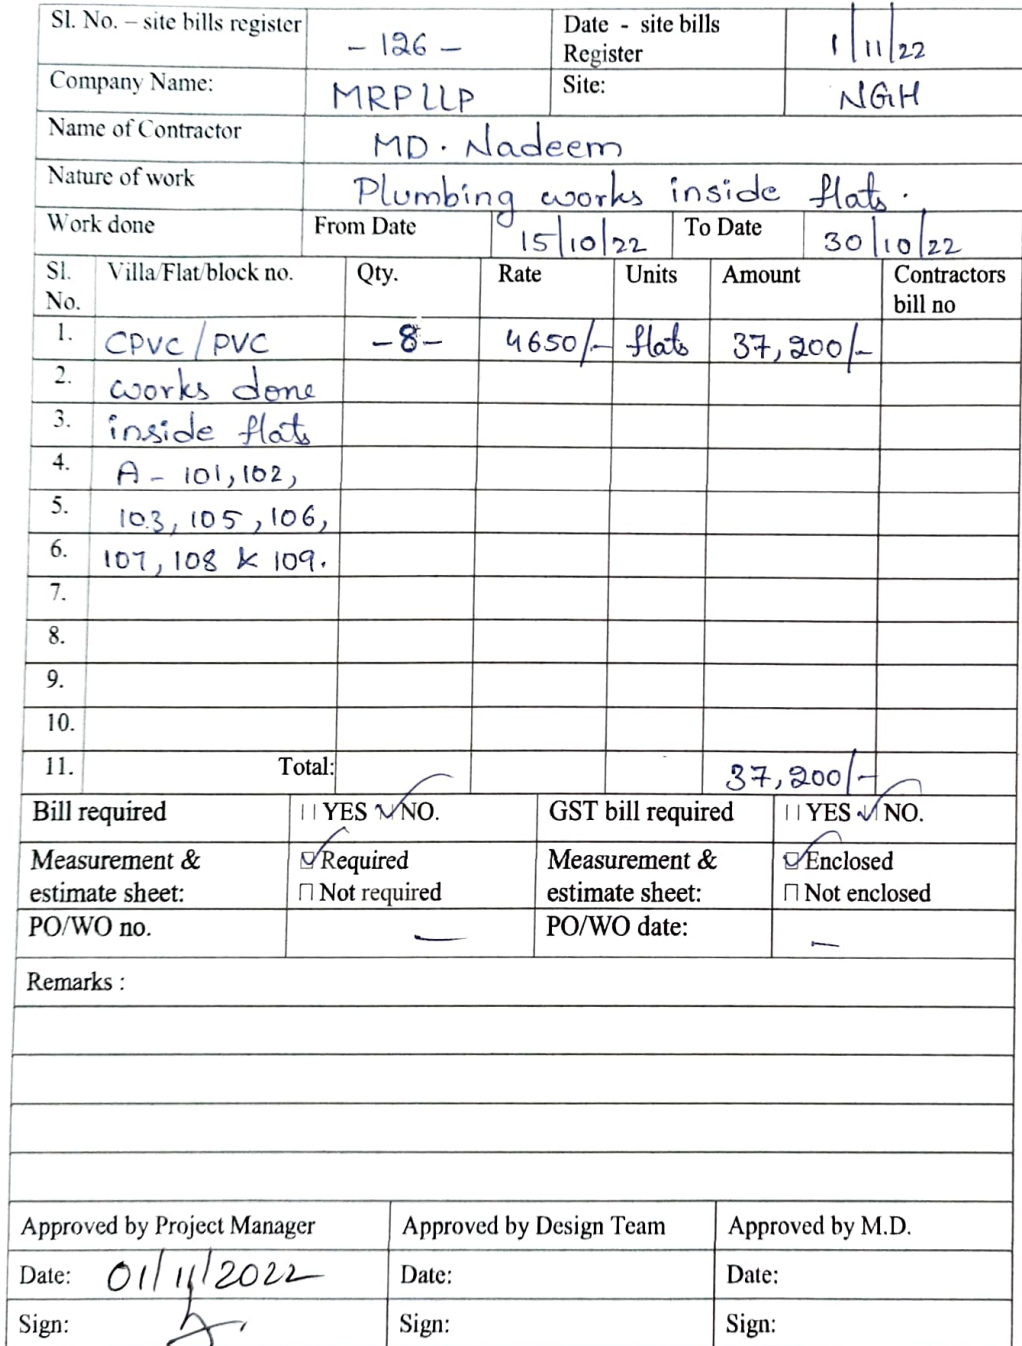 Sl. No. – site bills register - 126 - Date - site bills Register 1/11/22
Company Name: MRP LLP Site: NGH
Name of Contractor MD. Nadeem
Nature of work Plumbing works inside flats.
Work done From Date 15/10/22 To Date 30/10/22
Sl. No. Villa/Flat/block no. Qty. Rate Units Amount Contractors bill no
1. CPVC/PVC -8- 4650/- flats 37,200/-
2. works done
3. inside flats
4. A - 101, 102,
5. 103, 105, 106,
6. 107, 108 & 109.
7.
8.
9.
10.
11. Total: 37,200/-
Bill required YES NO. GST bill required YES NO.
Measurement & estimate sheet: Required Measurement & estimate sheet: Enclosed
Not required Not enclosed
PO/WO no. — PO/WO date: —
Remarks :
Approved by Project Manager Approved by Design Team Approved by M.D.
Date: 01/11/2022 Date: Date:
Sign: Sign: Sign: